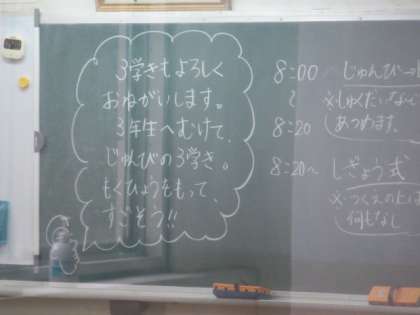 3学きもよろしく
おねがいします。
3年生へむけて、
じゅんびの3学き。
もくひょうをもって、
すごそう!!
8:00 〜 じゅんび
※しゅくだい
8:20 あつめます。
8:20〜 しぎょう式
※つくえの上は
何もなし